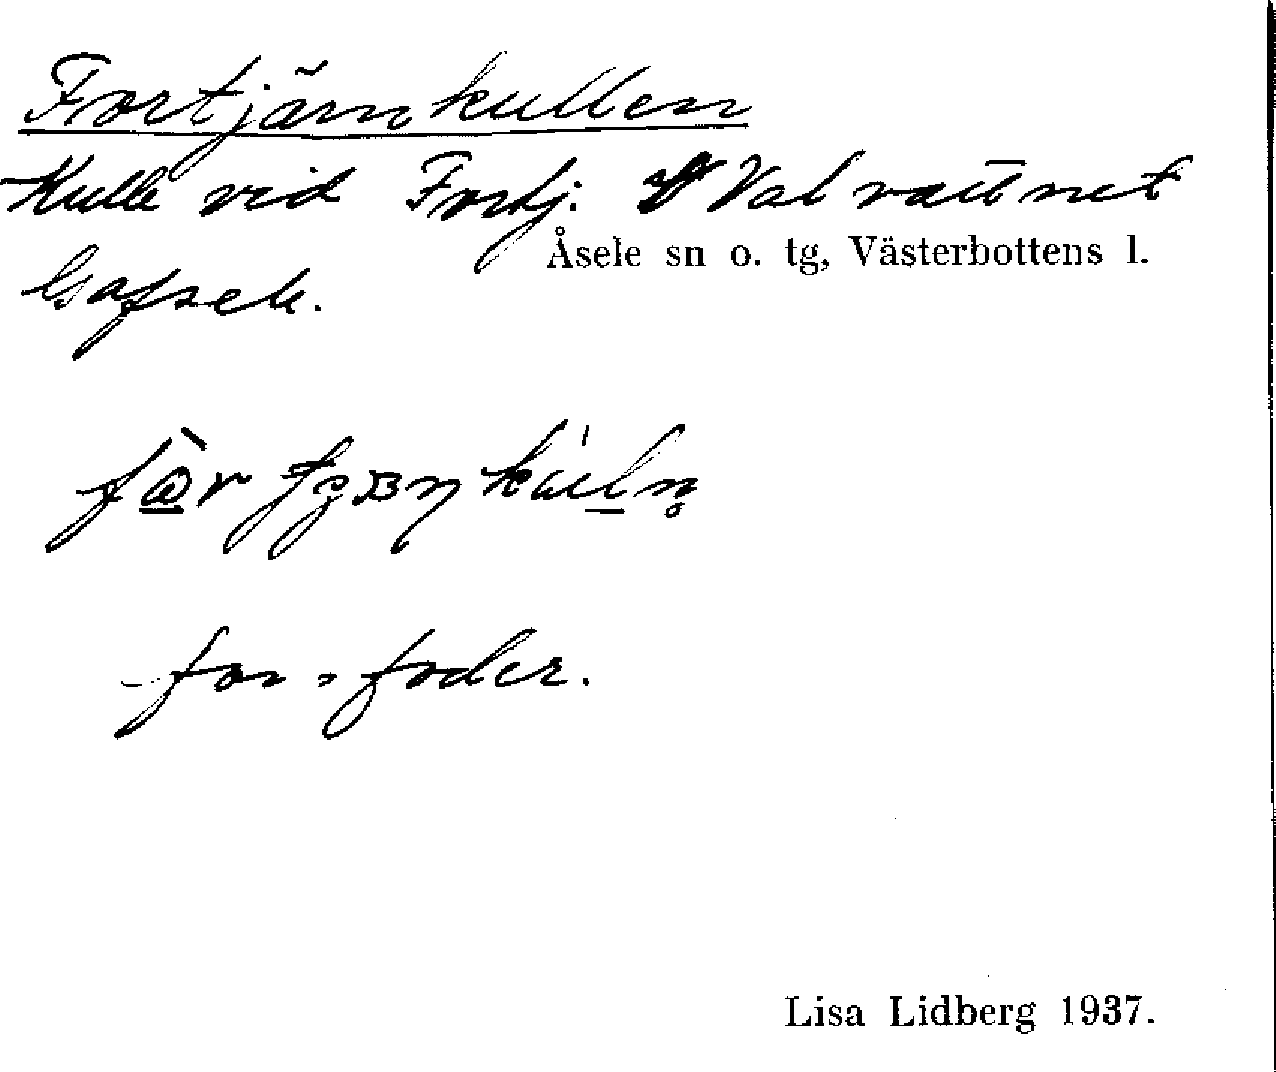 Fortjärnkullen
Kulle vid Fortj. Valvattnet
Åsele sn o. tg, Västerbottens l.
Gafsele.
for = foder.
Lisa Lidberg 1937.